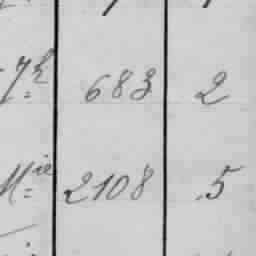 7h 683 2
Mie 2108 5